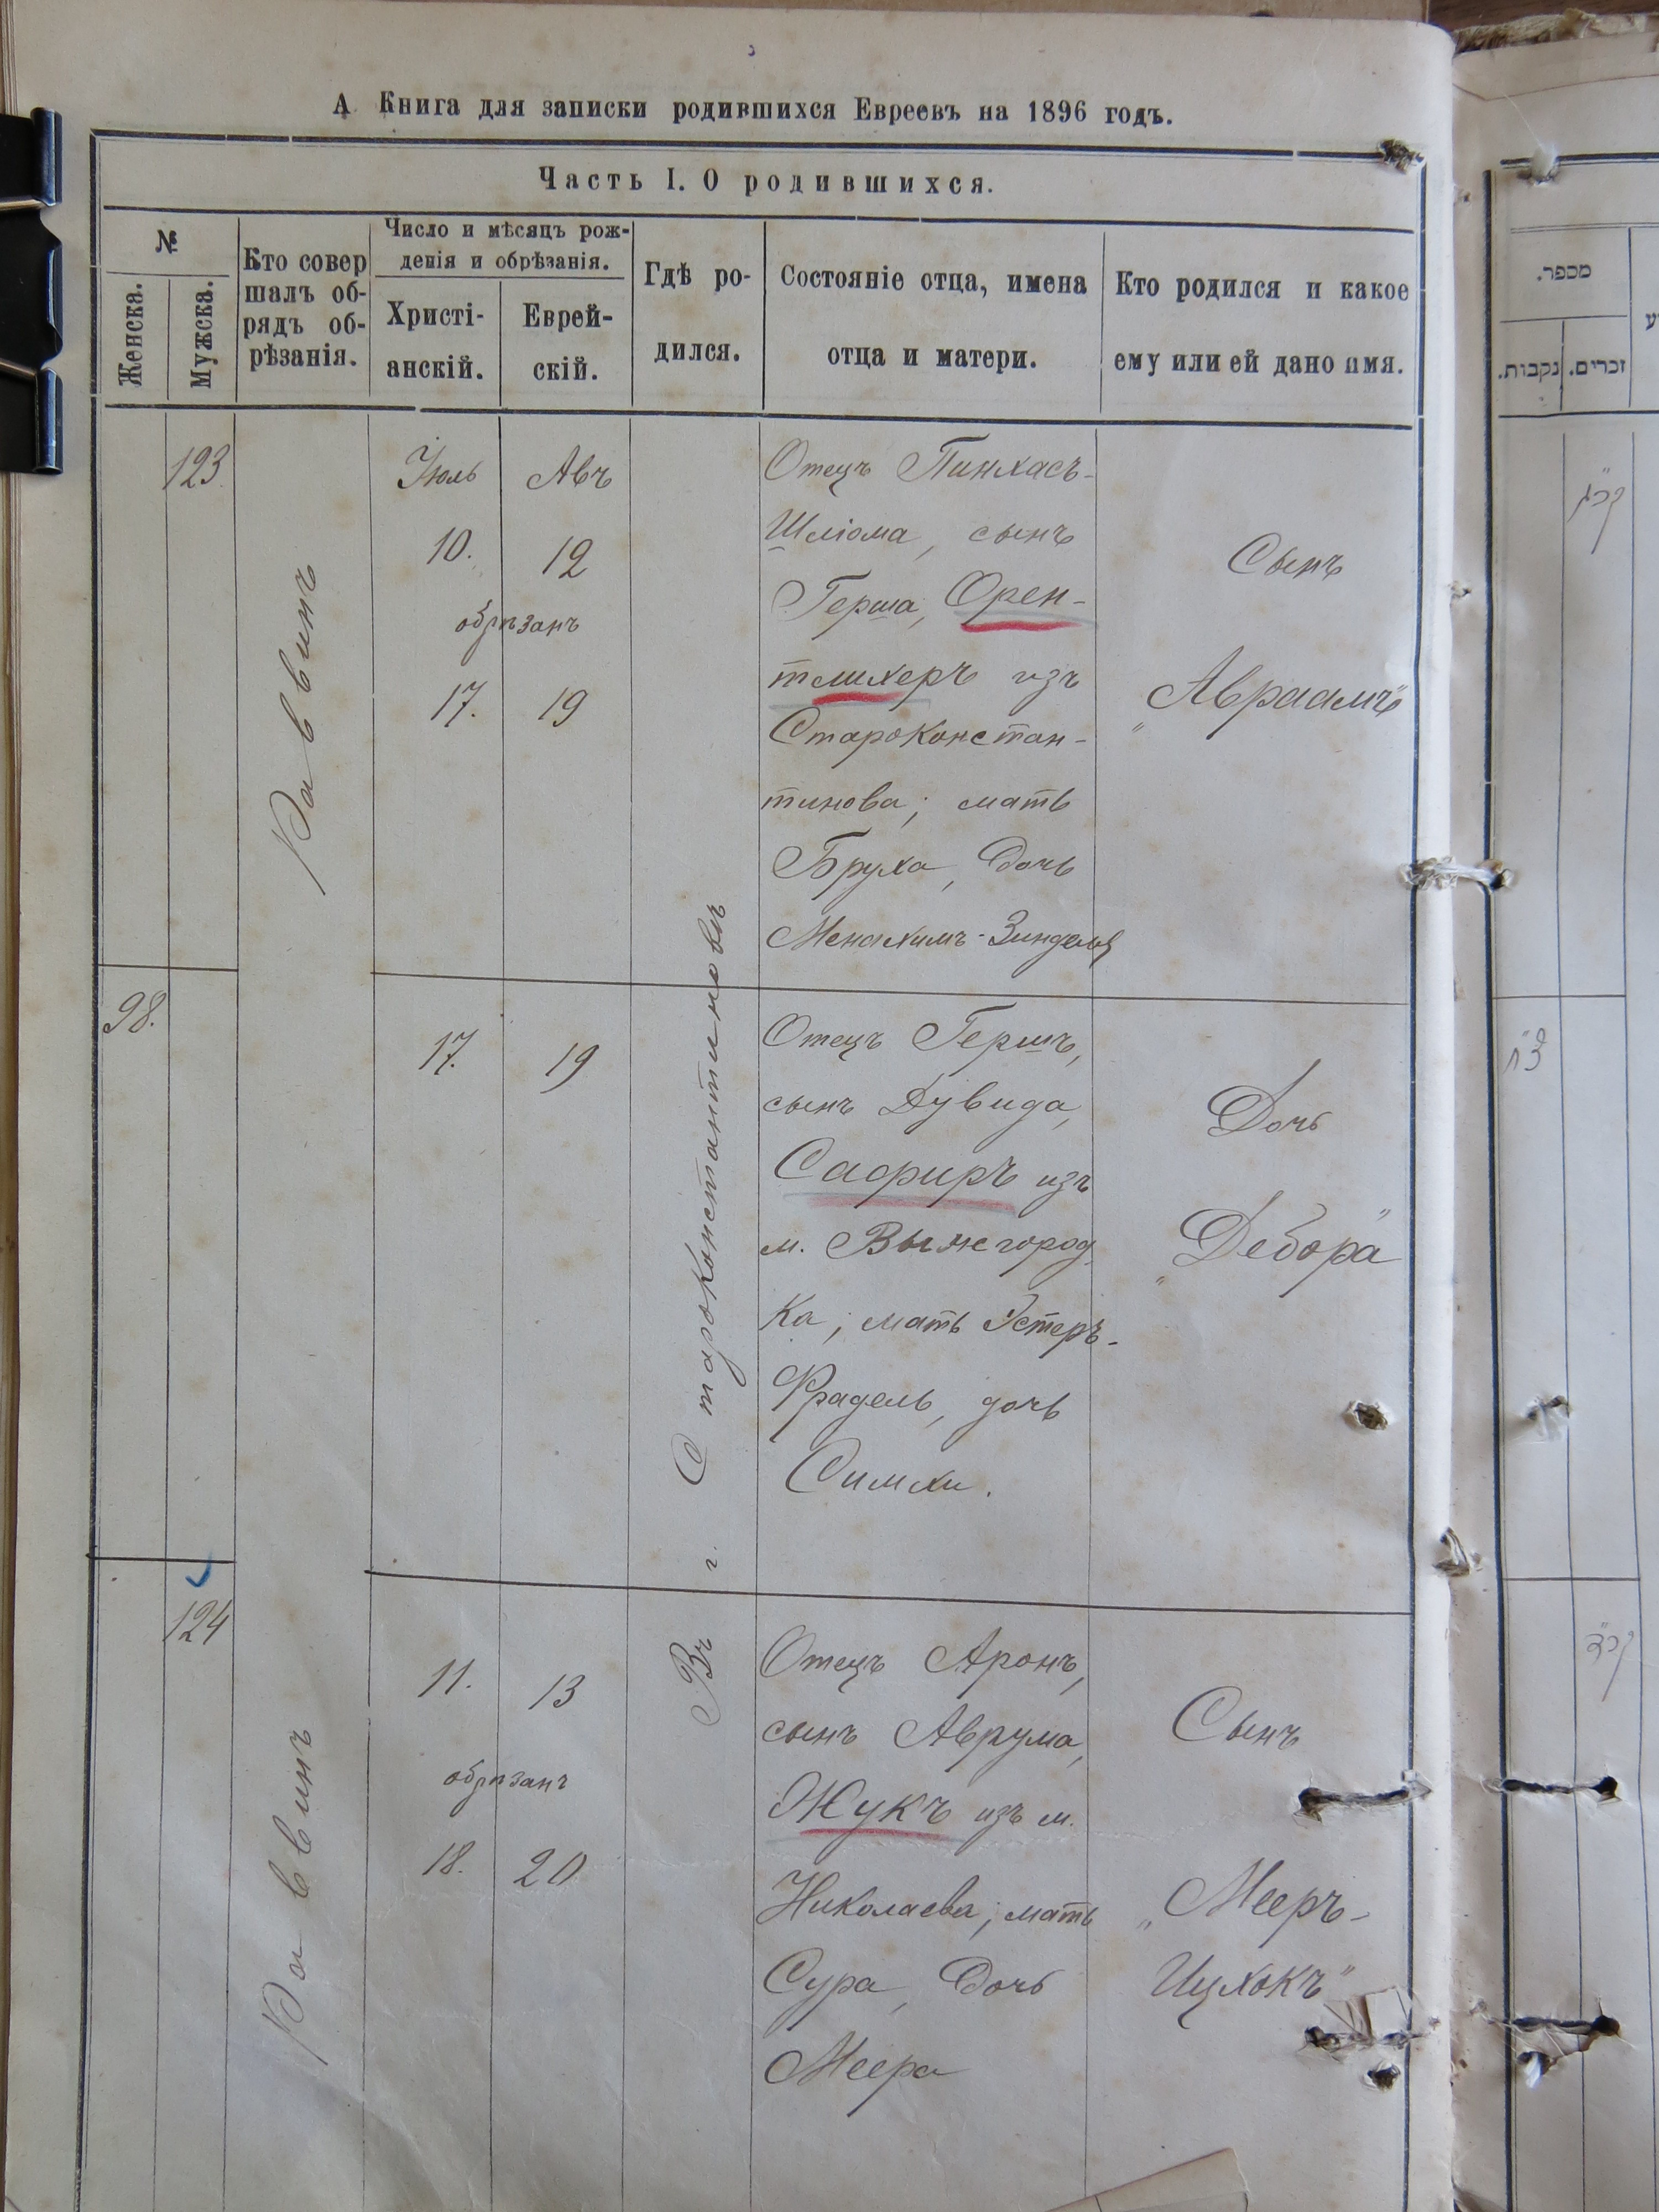 А Книга для записки родившихся Евреевъ на 1896 годъ.
Часть I. О родившихся.
№
Женска.
Мужска.
Кто совер
шалъ об-
рядъ об-
рѣзанія.
Число и мѣсяцъ рож-
денія и обрѣзанія.
Христі-
анскій.
Еврей-
скій.
Гдѣ ро-
дился.
Состояніе отца, имена
отца и матери.
Кто родился и какое
ему или ей дано имя.
123
Раввинъ
Июль
Авъ
10.
12
обрѣзанъ
17.
19
Въ г. Староконстантиновъ
Отецъ Пинхасъ-
Шліома, сынъ
Герша, Орен-
тлихеръ изъ
Староконстан-
тинова; мать
Бруха, дочь
Менахимъ-Зинделя
Сынъ
"Авраамъ"
98.
17.
19
Отецъ Гершъ,
сынъ Дувида,
Сафиръ изъ
м. Вышегород
ка; мать Эстеръ-
Фрадель, дочь
Симхи.
Дочь
"Дебора"
124
Раввинъ
11.
13
обрѣзанъ
18.
20
Отецъ Аронъ,
сынъ Аврума,
Жукъ изъ м.
Николаева; мать
Сура, дочь
Меера
Сынъ
„Мееръ-
Ицхокъ"
מספר.
נקבות.
זכרים.
קכ״ג
צ״ח
קכ״ד